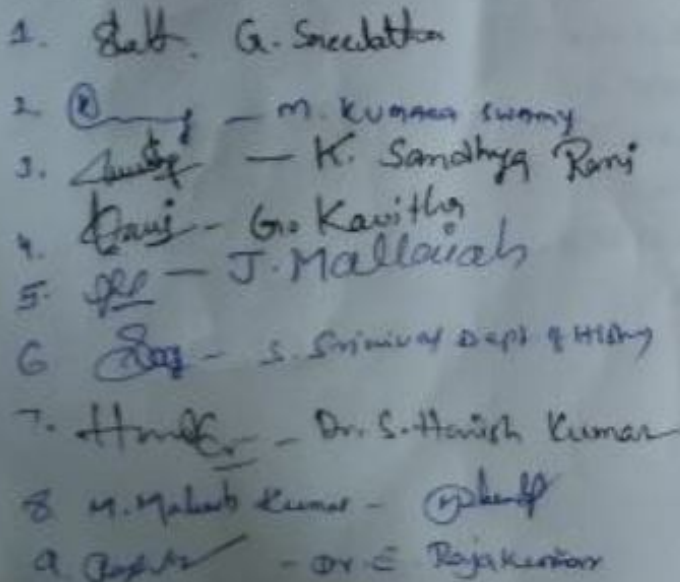 1. G. Sreelatha
2. — M. KUMARA SWAMY
3. — K. Sandhya Rani
4. — G. Kavitha
5. — J. Mallaiah
6 — S. Srinivas Dept of History
7. — Dr. S. Harish Kumar
8 M. Mahesh Kumar —
9 — Dr. E Rajakumar